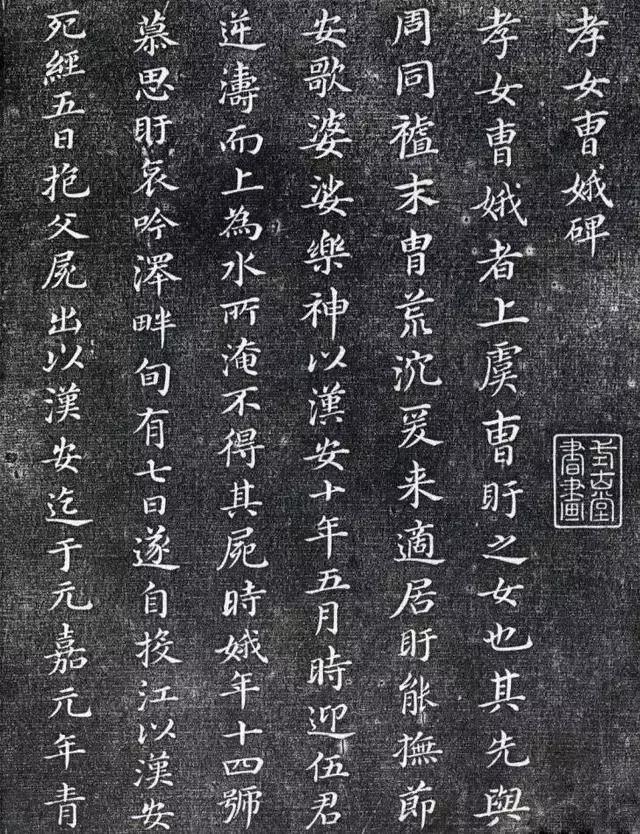 孝女曹娥碑
孝女曹娥者上虞曹盱之女也其先與
周同祖末胄荒沉爰来適居盱能撫節
安歌婆娑樂神以漢安十年五月時迎伍君
逆濤而上為水所淹不得其屍時娥年十四號
慕思盱哀吟澤畔旬有七日遂自投江以漢安
死經五日抱父屍出以漢安迄于元嘉元年青
古堂書畫